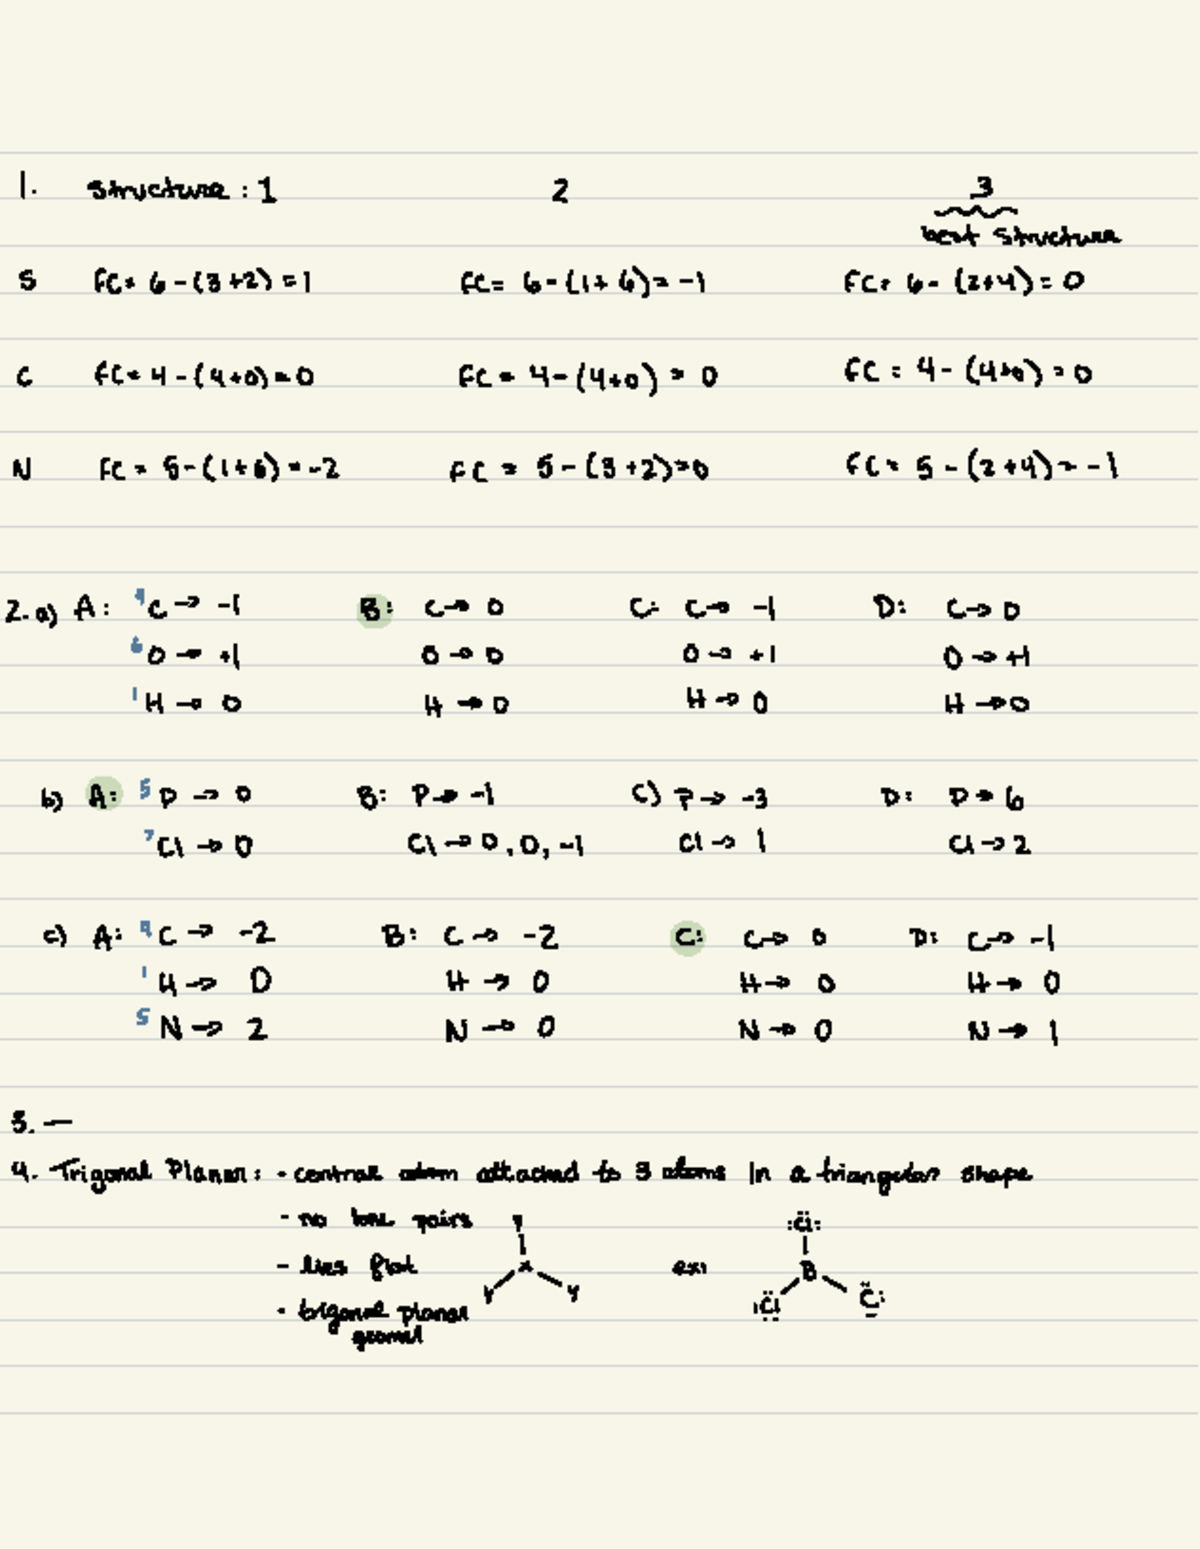 1. Structure : 1 2 3
best structure
S FC= 6-(3+2)=1 FC= 6-(1+6)=-1 FC= 6-(2+4)=0
C FC=4-(4+0)=0 FC=4-(4+0)=0 FC=4-(4+0)=0
N FC=5-(1+6)=-2 FC=5-(3+2)=0 FC=5-(2+4)=-1
2. a) A: 4 C → -1 B: C → 0 C: C → -1 D: C → 0
6 O → +1 O → 0 O → +1 O → +1
1 H → 0 H → 0 H → 0 H → 0
b) A: 5 P → 0 B: P → -1 C) P → -3 D: P → 6
7 Cl → 0 Cl → 0, 0, -1 Cl → 1 Cl → 2
c) A: 4 C → -2 B: C → -2 C: C → 0 D: C → -1
1 H → 0 H → 0 H → 0 H → 0
5 N → 2 N → 0 N → 0 N → 1
3. —
4. Trigonal Planar: - central atom attached to 3 atoms in a triangular shape
- no lone pairs Y Cl
- lies flat X ex: B
Y Y Cl Cl
- trigonal planar
geomet